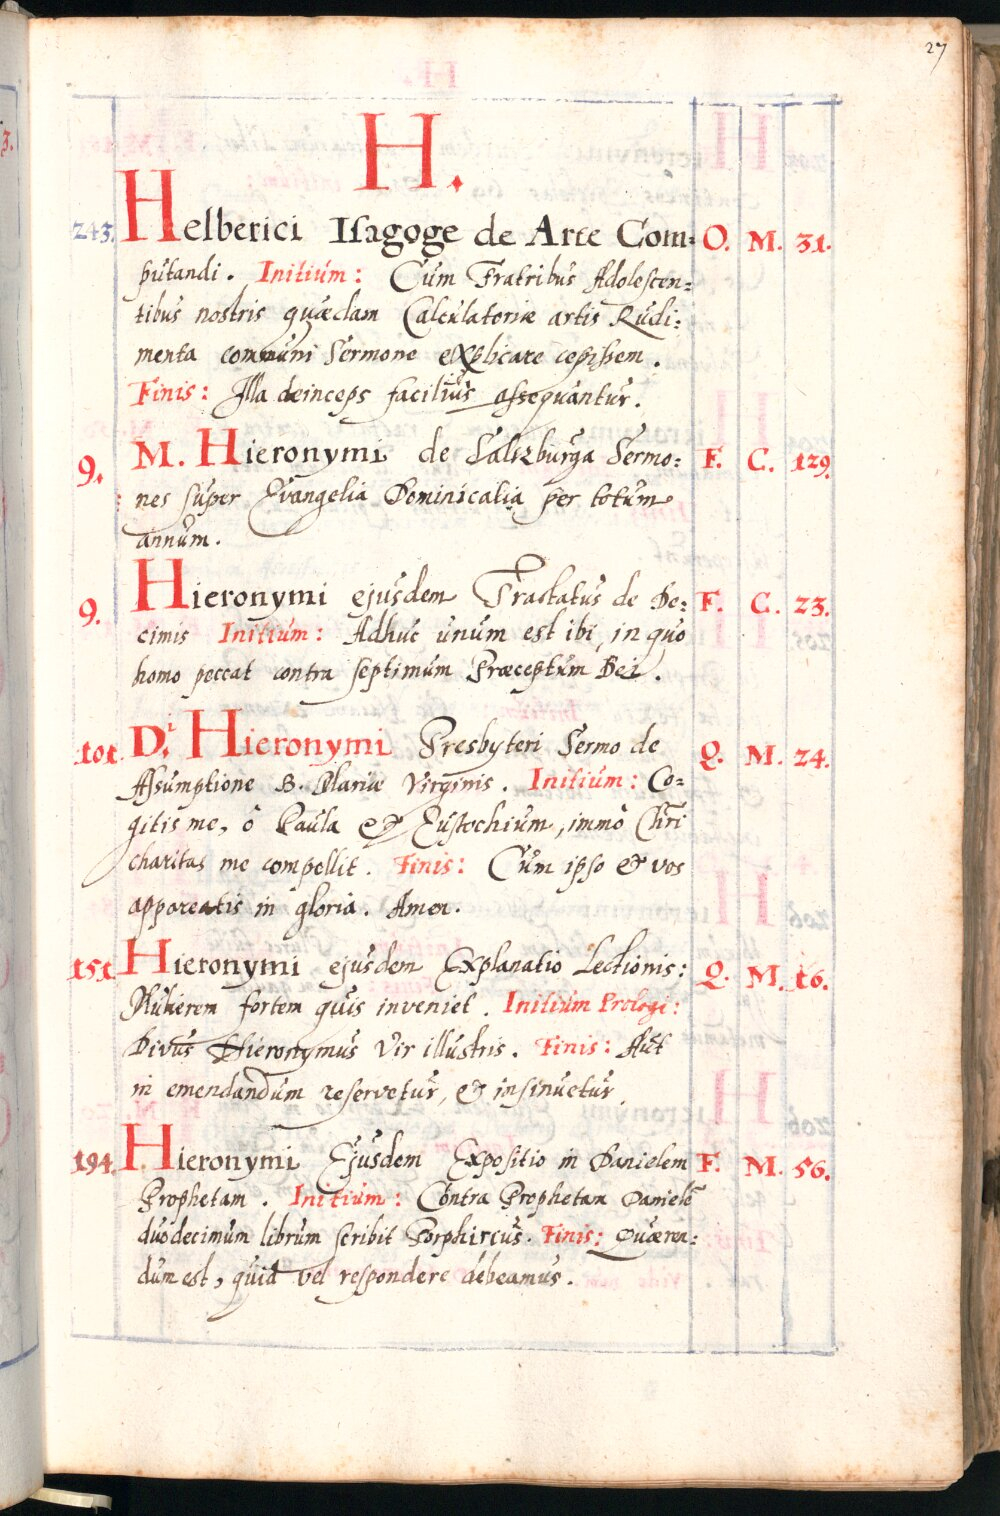 27
H.
243. Helberici Isagoge de Arte Com= O. M. 31.
putandi. Initium: Cum Fratribus Adolescen=
tibus nostris quædam Calculatoriæ artis Rudi=
menta communi Sermone explicare cepissem.
Finis: Illa deinceps facilius assequantur.
9. M. Hieronymi de Saltzburga Sermo= F. C. 129.
nes super Evangelia Dominicalia per totum
annum.
9. Hieronymi ejusdem Tractatus de De= F. C. 23.
cimis Initium: Adhuc unum est ibi, in quo
homo peccat contra septimum Præceptum Dei.
101. D.i Hieronymi Presbyteri Sermo de Q. M. 24.
Assumptione B. Mariæ Virginis. Initium: Co=
gitis me, ô Paula & Eustochium, immò Chri
charitas me compellit. Finis: Cum ipso & vos
appareatis in gloria. Amen.
151 Hieronymi ejusdem Explanatio Lectionis: Q. M. 16.
Mulierem fortem quis inveniet. Initium Prologi:
Divus Hieronymus Vir illustris. Finis: Aut
in emendandum reservetur, & insinuetur.
194. Hieronymi Ejusdem Expositio in Danielem F. M. 56.
Prophetam. Initium: Contra Prophetam Danielē
duodecimum librum scribit Porphirius. Finis: Quæren=
dum est, quid vel respondere debeamus.